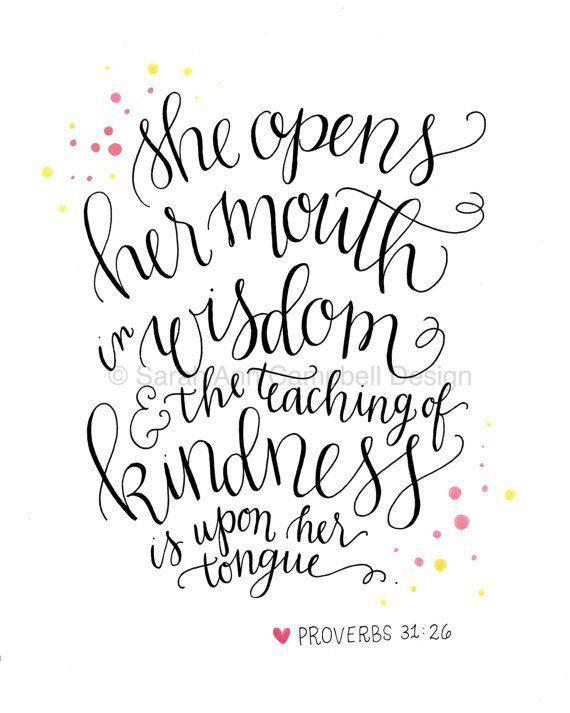 she opens
her mouth
in wisdom
© Sarah Ann Campbell Design
& the teaching of
kindness
is upon her
tongue.
PROVERBS 31:26